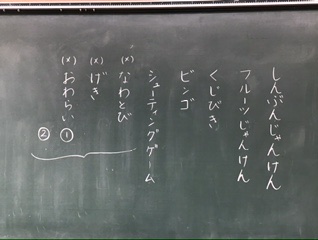 しんぶんじゃんけん
フルーツじゃんけん
くじびき
ビンゴ
シューティングゲーム
(×)なわとび
(×)げき
(×)おわらい ①
②